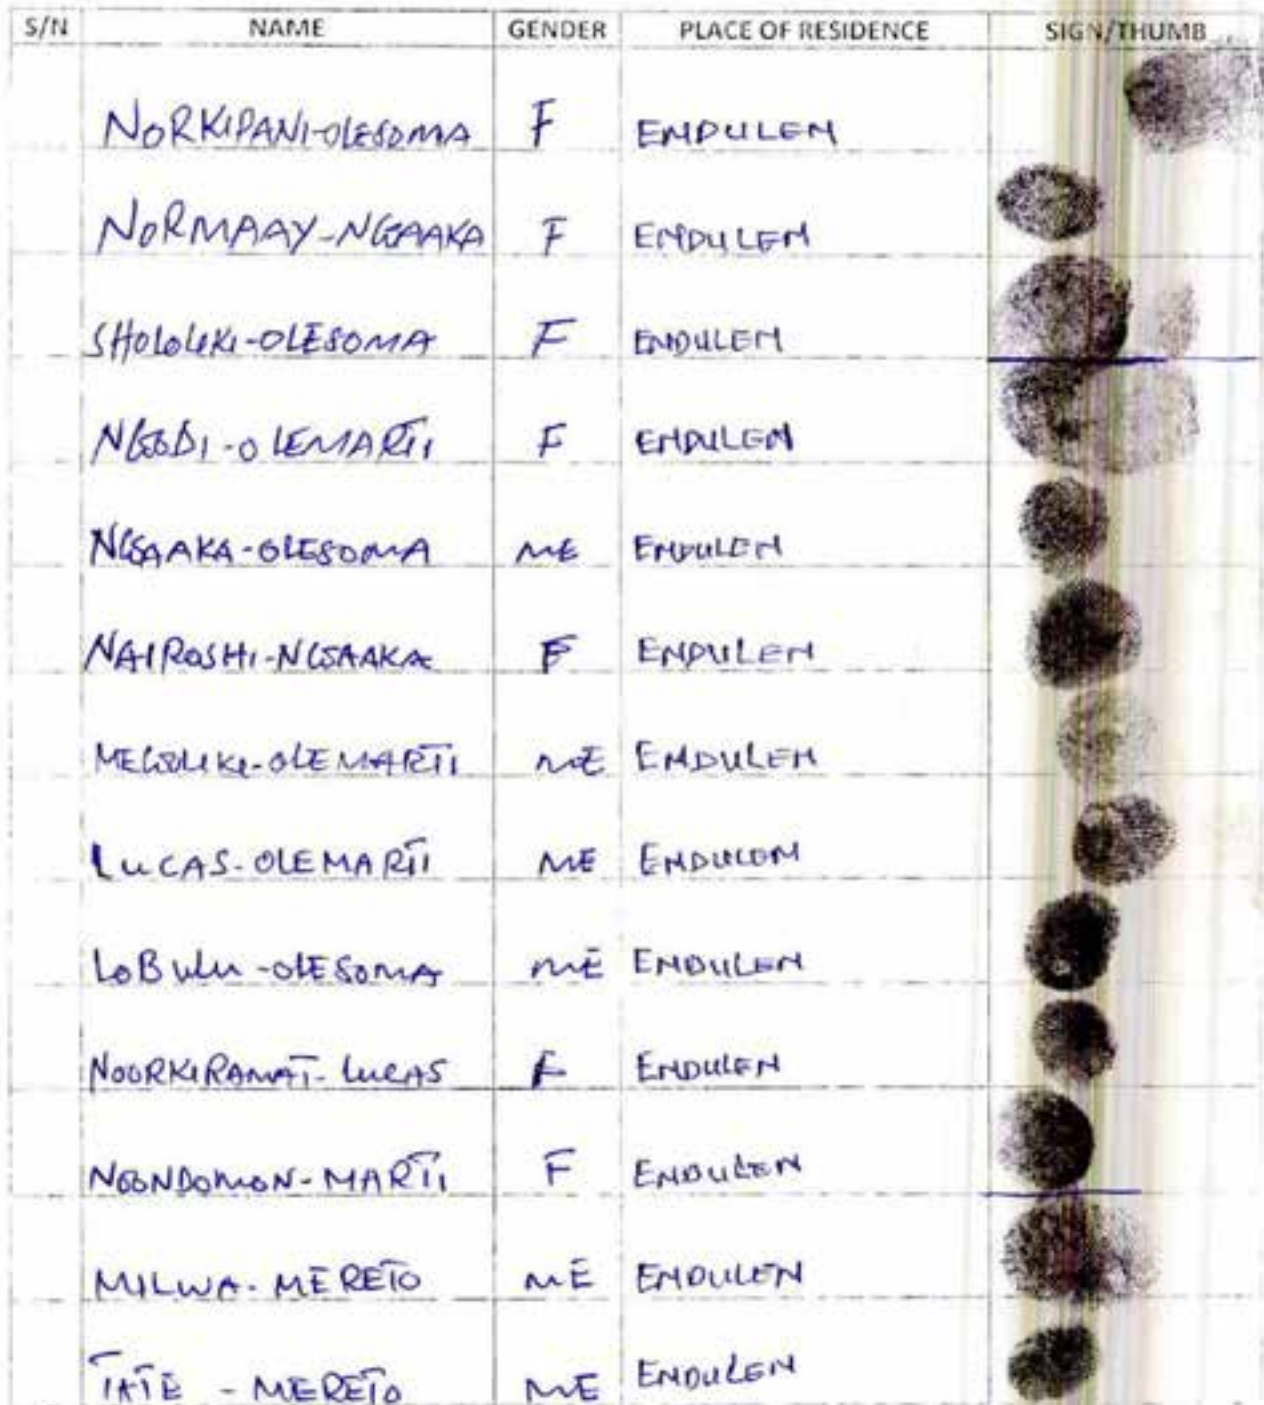 S/N NAME GENDER PLACE OF RESIDENCE SIGN/THUMB
NORKIPANI-OLESOMA F ENDULEN
NORMAAY-NGAAKA F ENDULEN
SHOLOLIKI-OLESOMA F ENDULEN
NGODI-OLEMARTI F ENDULEN
NGAAKA-OLESOMA ME ENDULEN
NAIROSHI-NGAAKA F ENDULEN
MEGOLIKI-OLEMARTI ME ENDULEN
LUCAS-OLEMARTI ME ENDULEN
LOBULU-OLESOMA ME ENDULEN
NOORKIRAMAT-LUCAS F ENDULEN
NOONDOMON-MARTI F ENDULEN
MILWA-MERETO ME ENDULEN
TATE - MERETO ME ENDULEN